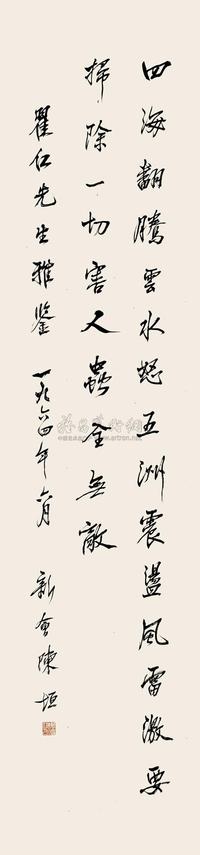 四海翻騰雲水怒五洲震盪風雷激要
掃除一切害人蟲全無敵
瞿仁先生雅鑒 一九六四年六月 新會陳垣